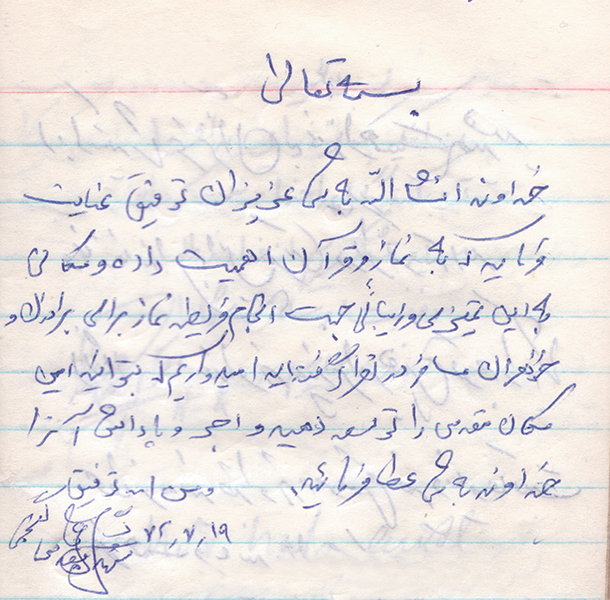 بسمه تعالی
خداوند انشاء الله به شما عزیزان توفیق عنایت
فرماید که به نماز و قرآن اهمیت داده و مکانی
به این تمیزی و زیبائی جهت انجام فریضه نماز برای برادران و
خواهران مسافر در نظر گرفته‌اید امیدواریم که بتوانید این
مکان مقدس را توسعه دهید و اجر و پاداش آنرا
خداوند به شما عطا فرمائید. و من الله توفیق
۷۲،۷،۱۹